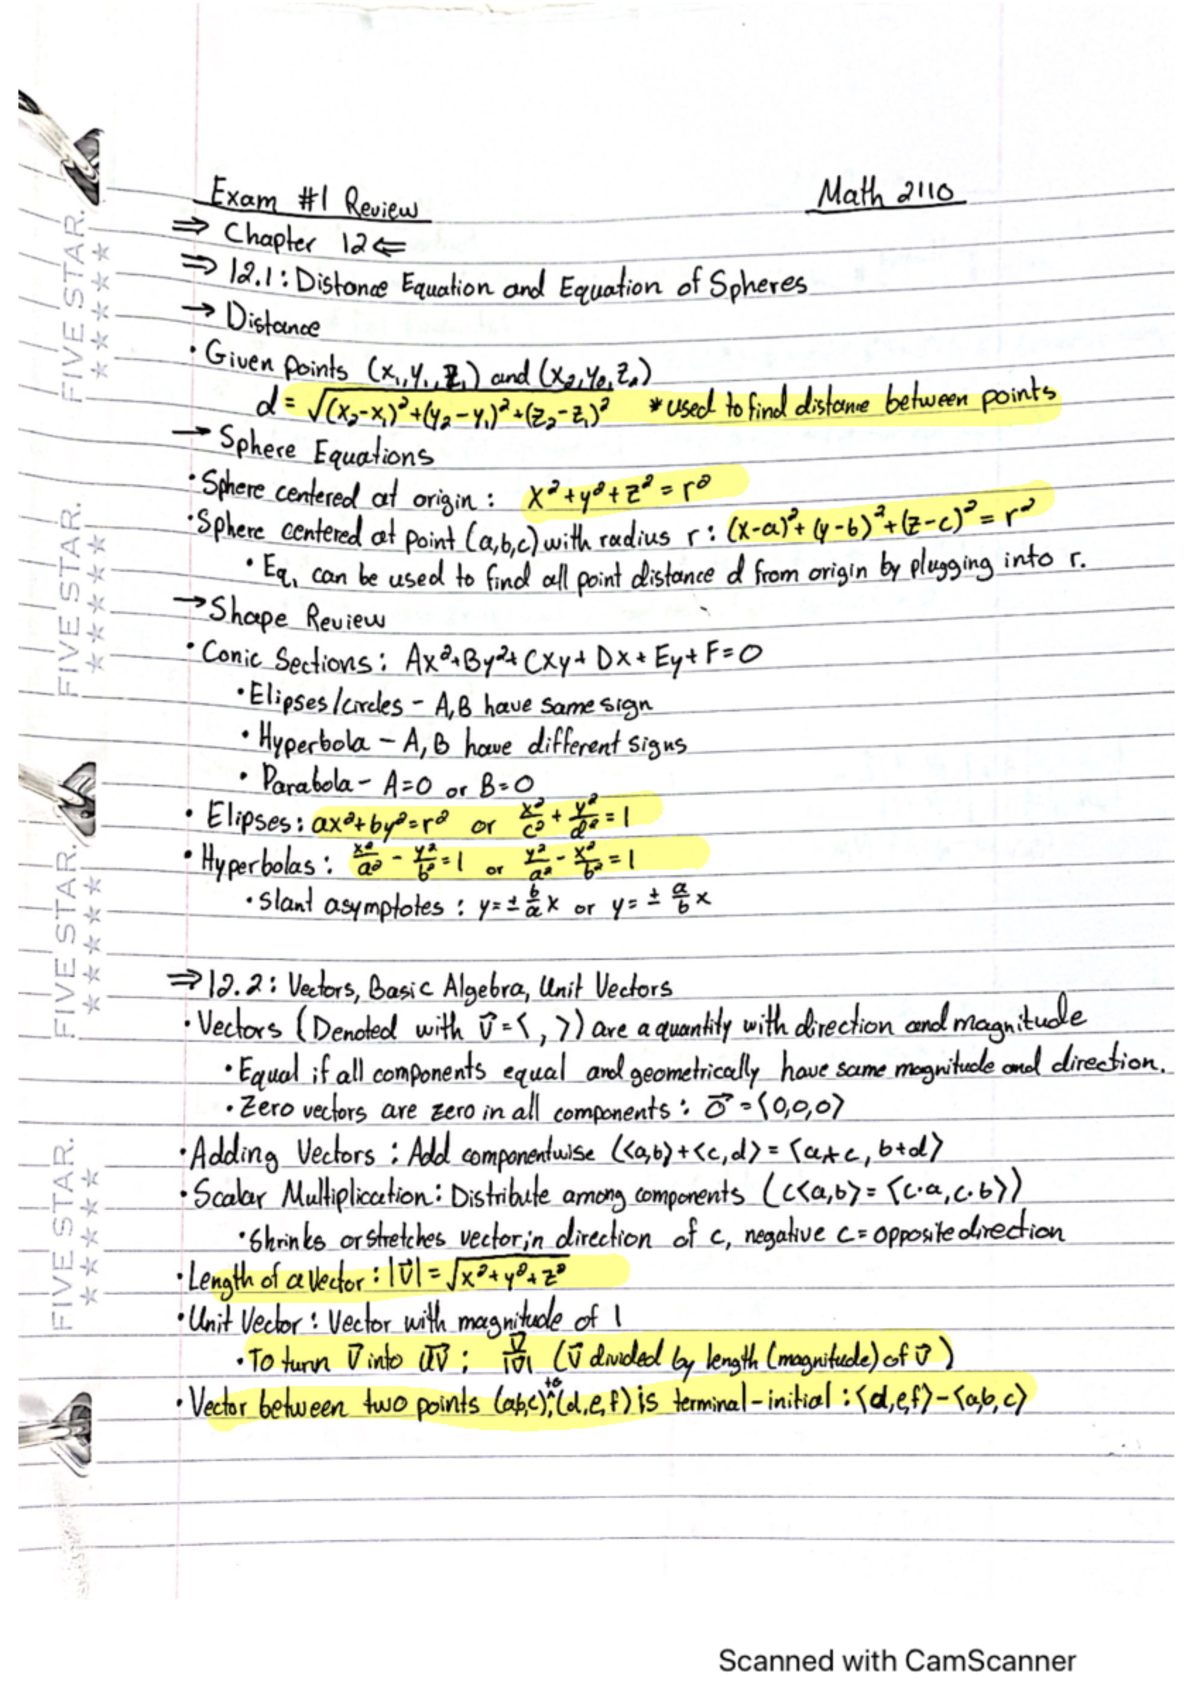 Exam #1 Review
Math 2110
⇒ Chapter 12 ⇐
⇒ 12.1: Distance Equation and Equation of Spheres
→ Distance
• Given points (x₁,y₁,z₁) and (x₂,y₂,z₂)
d = √(x₂-x₁)²+(y₂-y₁)²+(z₂-z₁)² *used to find distance between points
→ Sphere Equations
• Sphere centered at origin: x²+y²+z²=r²
• Sphere centered at point (a,b,c) with radius r: (x-a)²+(y-b)²+(z-c)²=r²
• Eq. can be used to find all point distance d from origin by plugging into r.
→ Shape Review
• Conic Sections: Ax²+By²+Cxy+Dx+Ey+F=0
• Elipses/circles - A,B have same sign
• Hyperbola - A,B have different signs
• Parabola - A=0 or B=0
• Elipses: ax²+by²=r² or x²/c² + y²/d² = 1
• Hyperbolas: x²/a² - y²/b² = 1 or y²/a² - x²/b² = 1
• Slant asymptotes: y=± b/a x or y=± a/b x
⇒ 12.2: Vectors, Basic Algebra, Unit Vectors
• Vectors (Denoted with v⃗=< , >) are a quantity with direction and magnitude
• Equal if all components equal and geometrically have same magnitude and direction.
• Zero vectors are zero in all components: 0⃗=<0,0,0>
• Adding Vectors: Add componentwise (<a,b>+<c,d>=<a+c, b+d>
• Scalar Multiplication: Distribute among components (c<a,b>=<c·a,c·b>)
• Shrinks or stretches vector, in direction of c, negative c=opposite direction
• Length of a vector: |v⃗|=√x²+y²+z²
• Unit Vector: Vector with magnitude of 1
• To turn v⃗ into uv⃗: v⃗/|v⃗| (v⃗ divided by length (magnitude) of v⃗)
• Vector between two points (a,b,c) to (d,e,f) is terminal-initial: <d,e,f>-<a,b,c>
FIVE STAR.
FIVE STAR.
FIVE STAR.
FIVE STAR.
Scanned with CamScanner